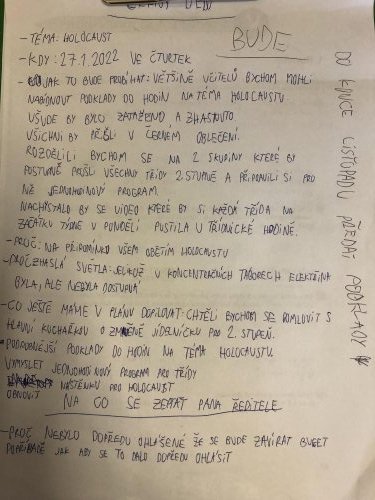 BUDE
DO KONCE LISTOPADU PŘEDAT PODKLADY
- TÉMA: HOLOCAUST
- KDY: 27.1.2022 VE ČTVRTEK
- JAK TO BUDE PROBÍHAT: VĚTŠINĚ UČITELŮ BYCHOM MOHLI
NABÍDNOUT PODKLADY DO HODIN NA TÉMA HOLOCAUSTU.
VŠUDE BY BYLO ZATAŽENO A ZHASNUTO
VŠICHNI BY PŘIŠLI V ČERNÉM OBLEČENÍ.
ROZDĚLILI BYCHOM SE NA 2 SKUPINY KTERÉ BY
POSTUPNĚ PROŠLI VŠECHNY TŘÍDY 2.STUPNĚ A PŘIPRAVILI SI PRO
NĚ JEDNOHODINOVÝ PROGRAM.
NACHYSTALO BY SE VIDEO KTERÉ BY SI KAŽDÁ TŘÍDA NA
ZAČÁTKU TÝDNE V PONDĚLÍ PUSTILA V TŘÍDNICKÉ HODINĚ.
- PROČ: NA PŘIPOMÍNKU VŠEM OBĚTÍM HOLOCAUSTU
- PROČ ZHASLÁ SVĚTLA: JELIKOŽ V KONCENTRAČNÍCH TÁBORECH ELEKTŘINA
BYLA, ALE NEBYLA DOSTUPNÁ
- CO JEŠTĚ MÁME V PLÁNU DOPILOVAT: CHTĚLI BYCHOM SE DOMLUVIT S
HLAVNÍ KUCHAŘKOU O ZMĚNĚ JÍDELNÍČKU PRO 2.STUPEŇ.
PODROBNĚJŠÍ PODKLADY DO HODIN NA TÉMA HOLOCAUSTU
VYMYSLET JEDNOHODINOVÝ PROGRAM PRO TŘÍDY
NÁSTĚNKU PRO HOLOCAUST
OBNOVIT
NA CO SE ZEPTAT PANA ŘEDITELE
- PROČ NEBYLO DOPŘEDU OHLÁŠENÉ ŽE SE BUDE ZAVÍRAT BUFET
POPŘÍPADĚ JAK ABY SE TO DALO DOPŘEDU OHLÁSIT